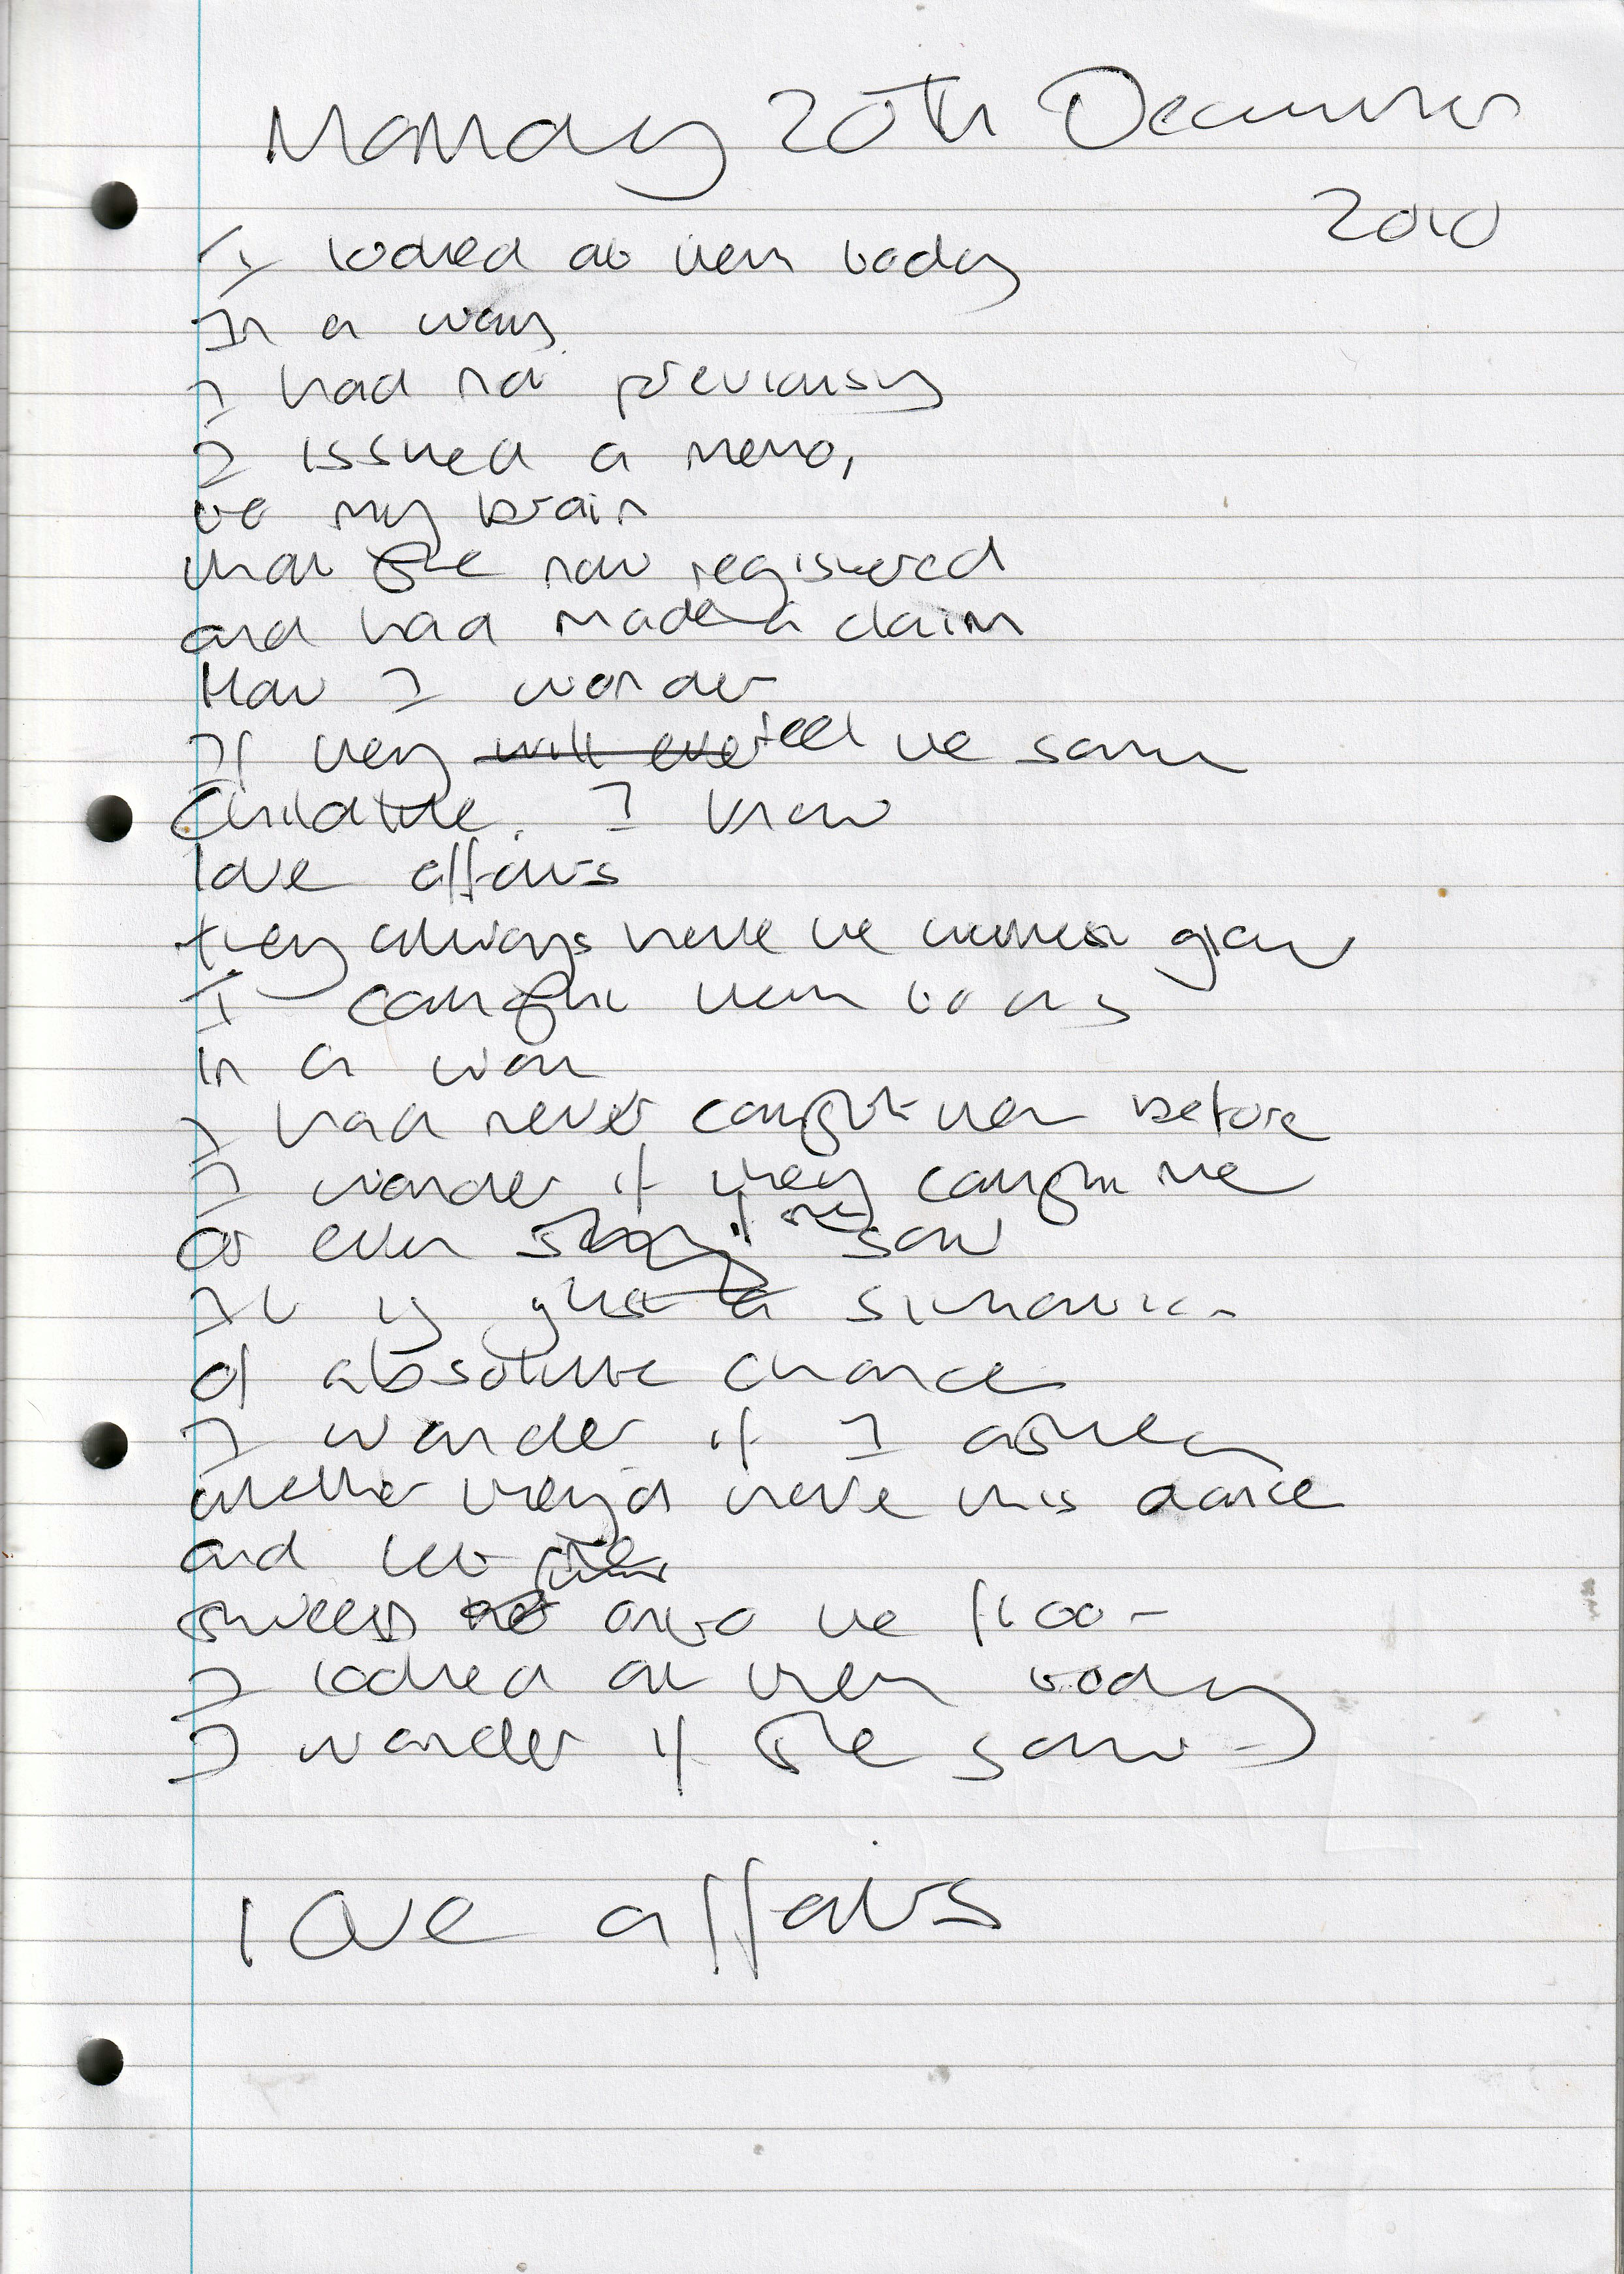 Monday 20th December
2010
I looked at them today
In a way
I had not previously
I issued a memo,
to my brain
that she now registered
and had made a claim
How I wonder
If they will ever feel the same
Childlike. I know
love affairs
they always have the glow
I caught them today
in a way
I had never caught them before
I wonder if they caught me
or even if she saw
It is just a situation
of absolute chance
I wonder if I asked
whether they'd have this dance
and let
onto the floor
I looked at them today
I wonder if she saw -
love affairs